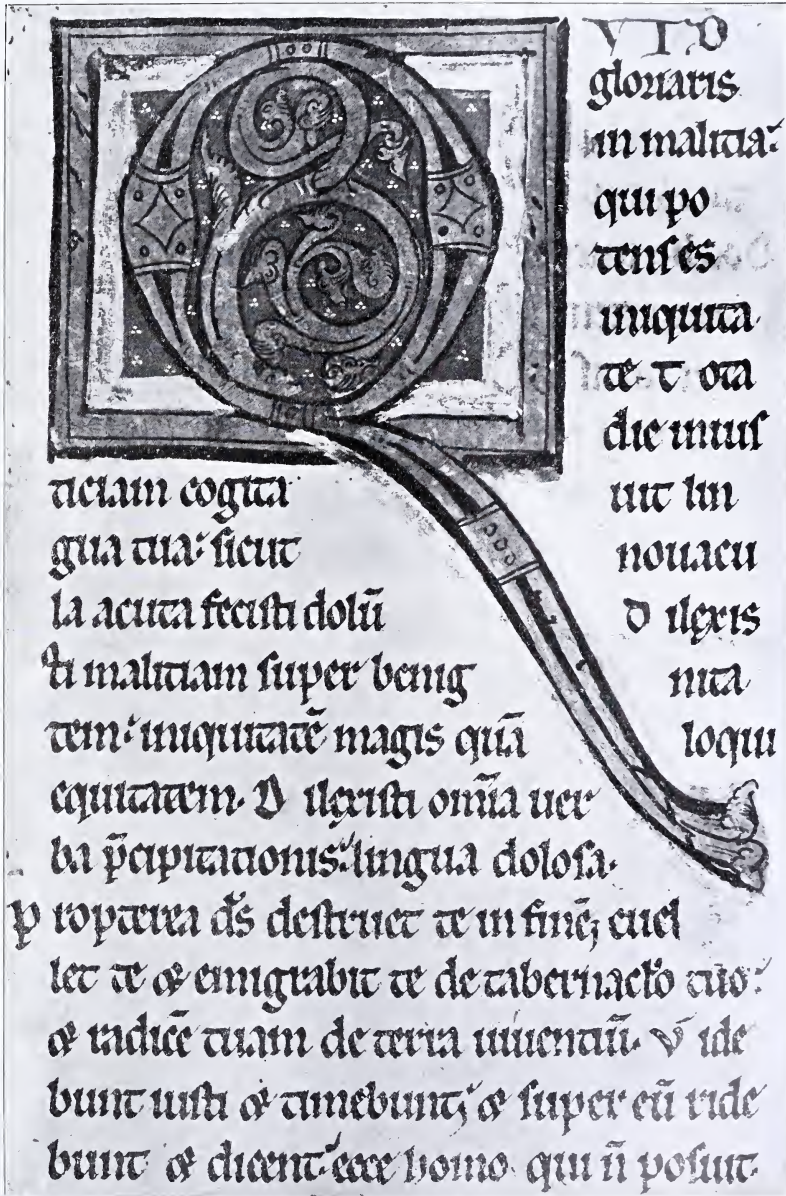 QVID
gloriaris
in malitia:
qui po
tenſ es
iniquita
te. T ota
die iniuſ
ticiam cogita uit lin
gua tua: ſicut nouacu
la acuta feciſti dolū D ilexis
ti malitiam ſuper benig nita
tem: iniquitatē magis quā loqui
equitatem. D ilexiſti om̄ia uer
ba p̄cipitationis: lingua doloſa.
P ropterea d̄s deſtruet te in finē; euel
let te & emigrabit te de tabernac̄lo tuo:
& radicē tuam de terra uiuentiū. V ide
bunt iuſti & timebunt; & ſuper eū ride
bunt & dicent: ecce homo qui n̄ poſuit